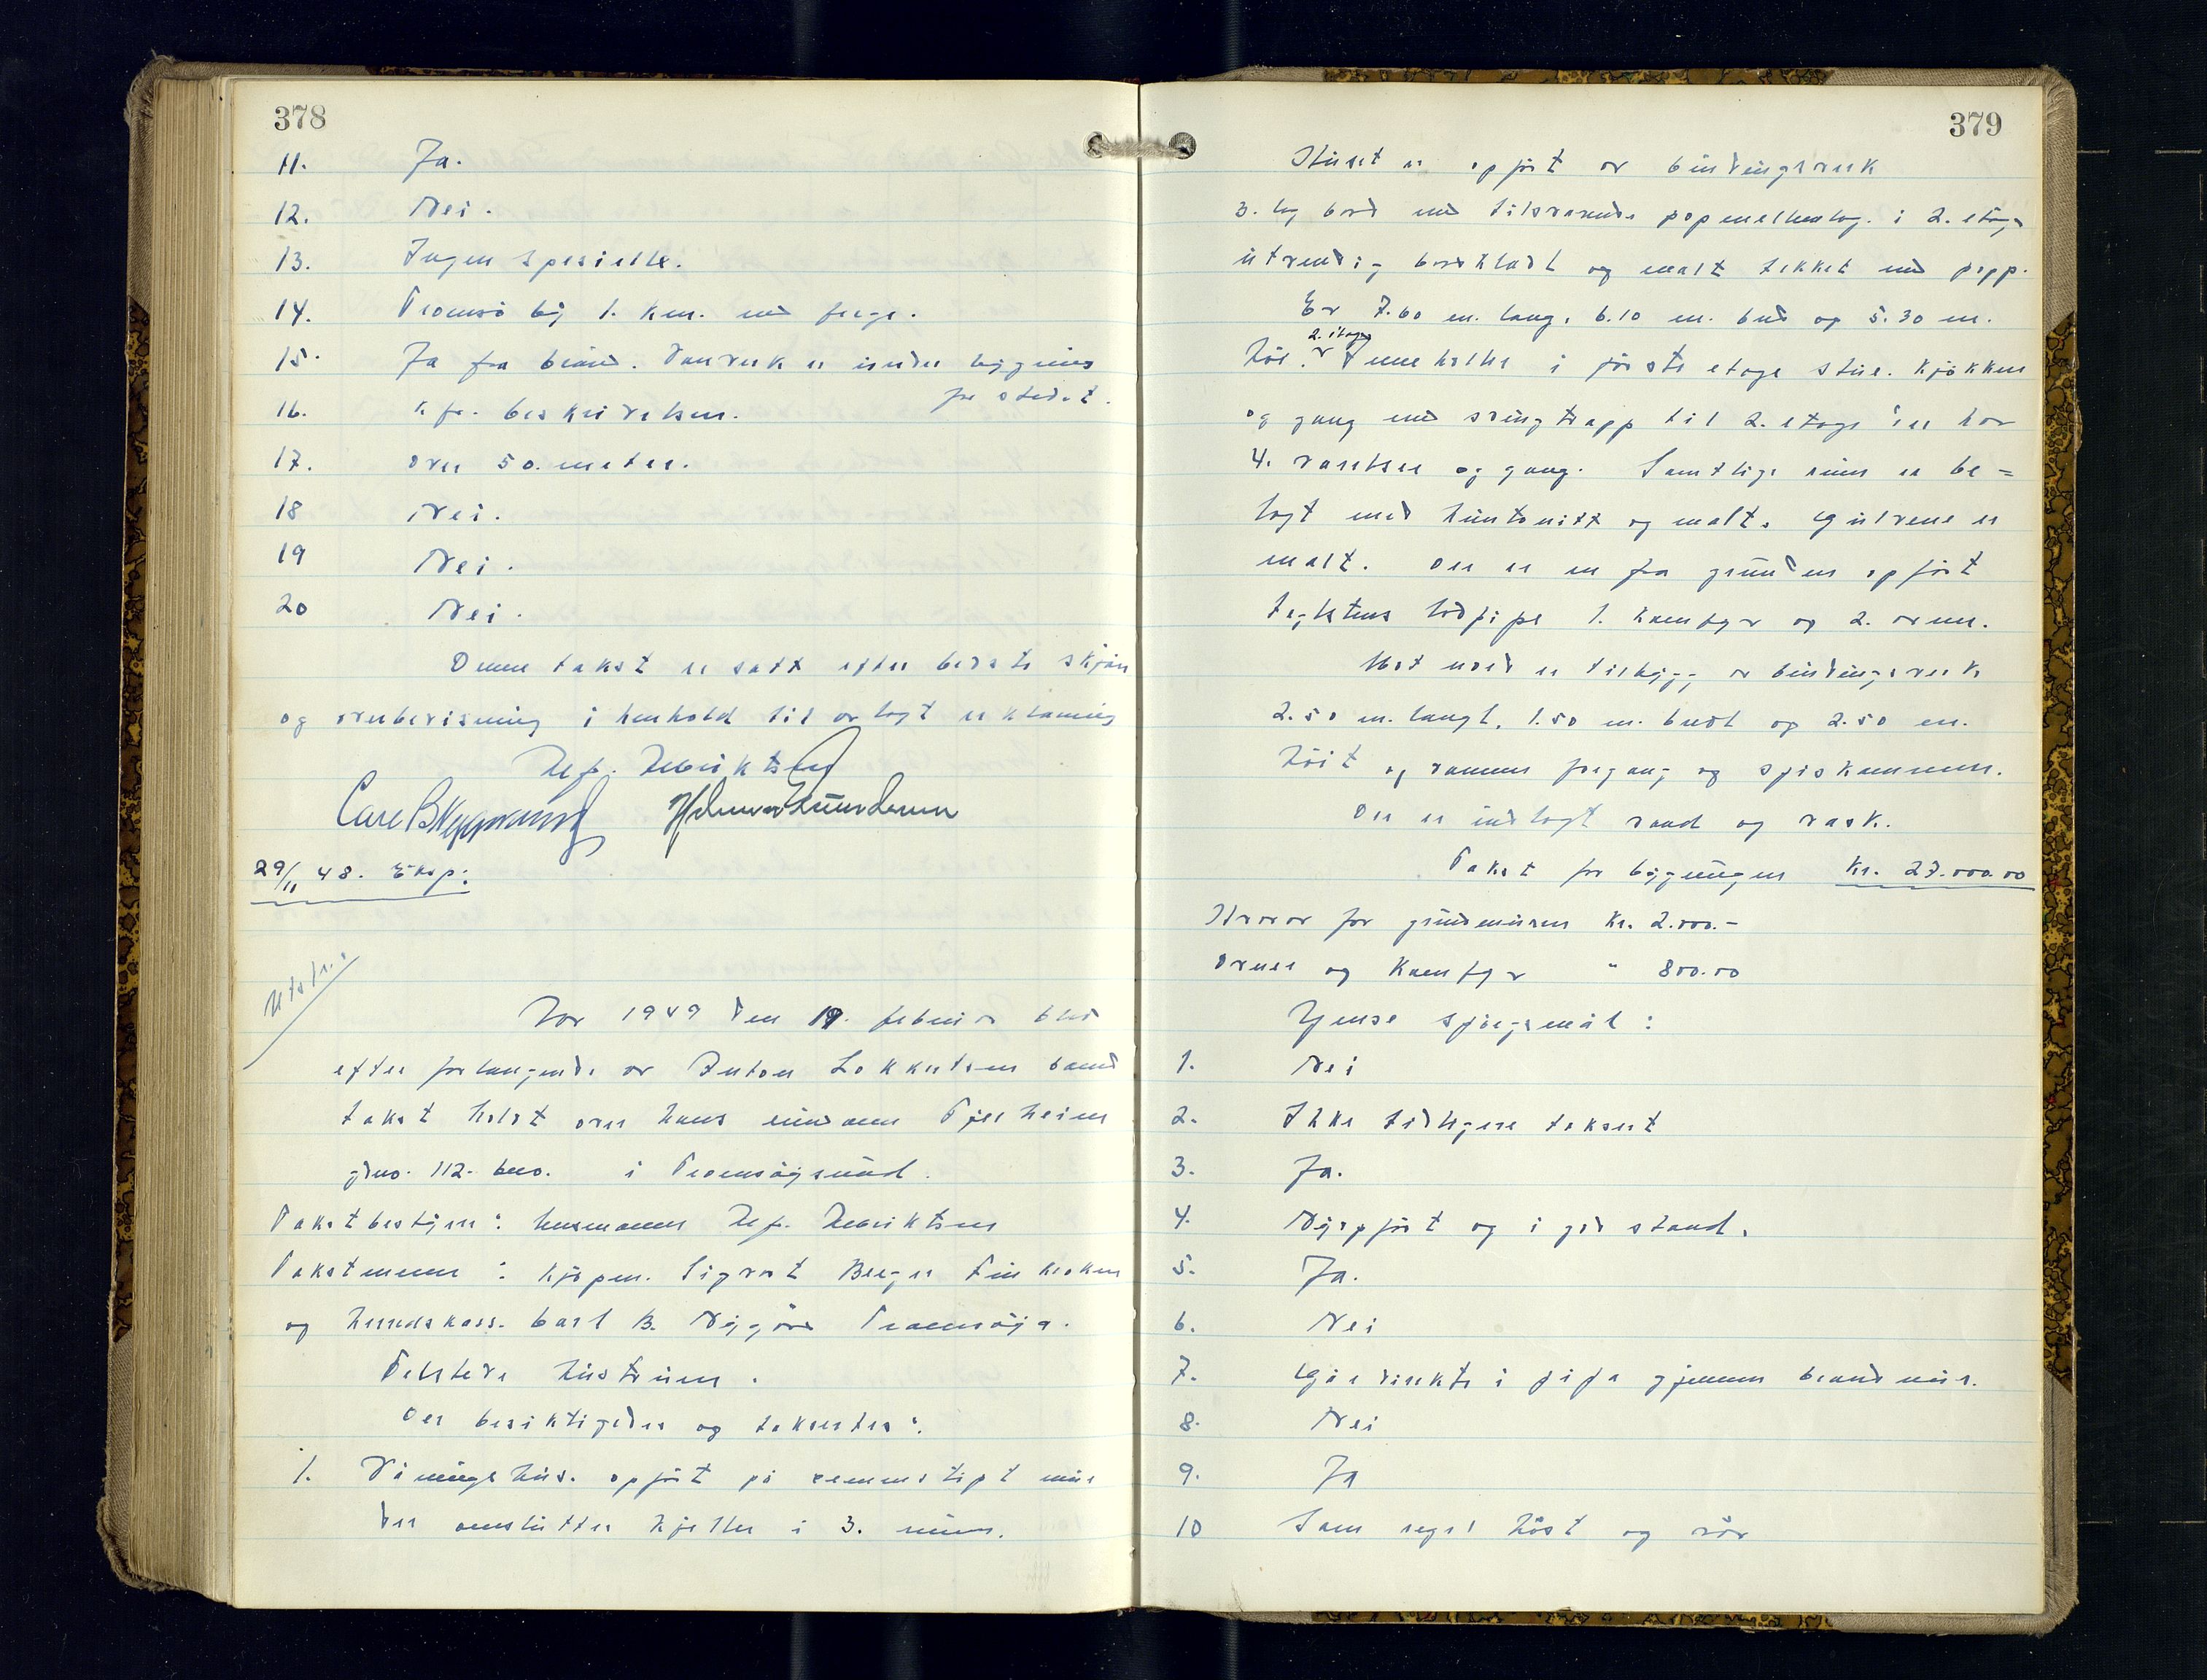 378
11. Ja.
12. Nei.
13. Ingen spesielle.
14. Tromsø by 1. km. med ferge.
15. Ja fra brönd. Vannverk er under bygning
på stedet.
16. beskrivelsen.
17. over 50. meter.
18 Nei.
19 Nei.
20 Nei.
Denne takst er satt efter bedste skjön
og overbevisning i henhold til avlagt erklæring
Alf. Henriktsen
Carl B. Nygaard Hilmar Gundersen
29/11 48. Eksp:
Utskr.
Aar 1949 den 19. februar blev
efter forlangende av Anton Lokkertsen
takst holdt over hans eiendom Fjellheim
gno. 112- bno. i Tromsøysund.
Takstbestyrer: lensmann Alf. Henriktsen
Takstmenn: kjøpm. Sigvart Berger Finkroken
og herredskass. Carl B. Nygård Tromsøya.
Tilstede hustruen.
Der besiktigedes og takseres:
1. Våningshus. opført på sementstøpt mur
der omslutter kjeller i 3. rum.
379
Huset er opført av bindingsverk
3. lag bord med tilsvarende papmellemlag. i 2. etage
utvendig bordkledt og malt tekket med papp.
Er 7.60 m. lang, 6.10 m. bred og 5.30 m.
2. etage
høi. Inneholder i første etage stue. kjøkken
og gang med svingtrapp til 2. etage der har
4. værelser og gang. Samtlige rum er be=
lagt med huntonitt og malt. Gulvene er
malt. Der er en fra grunden opført
teglstens lodpipe 1. komfyr og 2. ovner.
Mot nord er tilbygg av bindingsverk
2.50 m. langt, 1.50 m. bredt og 2.50 m.
høit og rummer forgang og spiskammer.
Der er indlagt vand og vask.
Takst for bygningen Kr. 27.000.00
Hvorav for grundmuren Kr. 2.000.-
Ovner og Komfyr " 800.00
Gjense spørgsmål:
1. Nei
2. Ikke tidligere taksert
3. Ja.
4. Nyopført og i god stand.
5. Ja.
6. Nei
7. Går direkte i pipa gjennem brandmur.
8. Nei
9. Ja
10 Som regel høst og vår